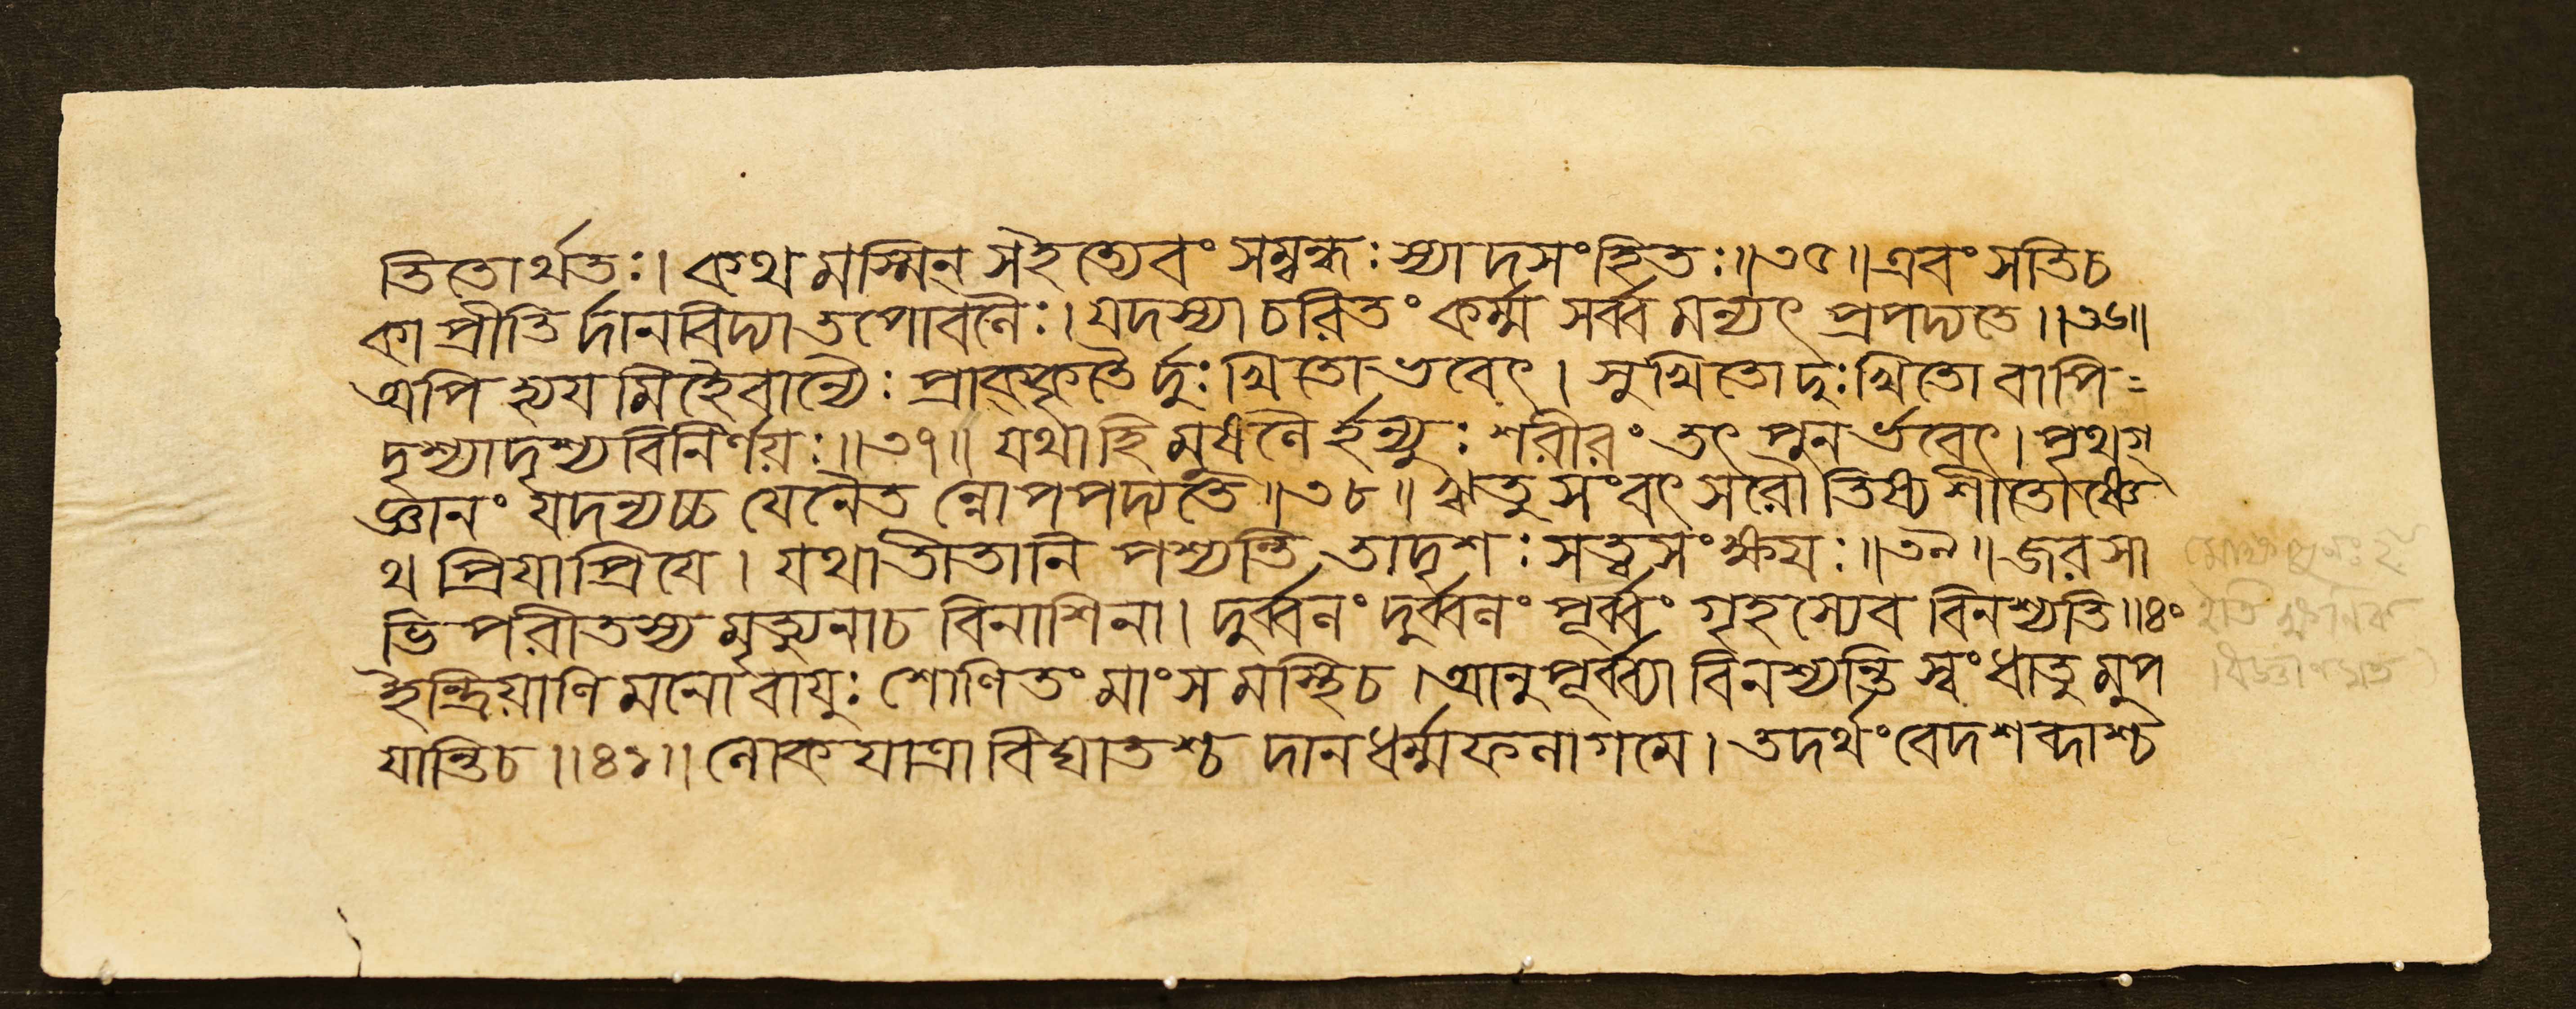 তিতোর্থতঃ। কথমস্মিন্ সইত্যেবং সম্বন্ধঃ স্যাদসংহিতঃ॥৩৫॥ এবং সতিচ
কা প্রীতির্দানবিদ্যাতপোবলৈঃ। যদস্যাচরিতং কর্ম্ম সর্ব্বমন্যৎ প্রপদ্যতে॥৩৬॥
অপি হ্যযমিহৈবান্যৈঃ প্রাক্কৃতৈর্দুঃখিতো ভবেৎ। সুখিতো দুঃখিতো বাপি=
দৃশ্যাদৃশ্যবিনির্ণয়ঃ॥৩৭॥ যথাহি মুষলৈর্হন্যুঃ শরীরং তৎ পুনর্ভবেৎ। পৃথগ্
জ্ঞানং যদন্যচ্চ যেনৈতন্নোপপদ্যতে॥৩৮॥ ঋতুসংবৎসরৌ তিষ্যশীতোষ্ণে
থ প্রিযাপ্রিযে। যথাতীতানি পশ্যন্তি তাদৃশঃ সত্ত্বসংক্ষযঃ॥৩৯॥ জরসা
ভিপরীতস্য মৃত্যুনাচ বিনাশিনা। দুর্ব্বলং দুর্ব্বলং পূর্ব্বং গৃহস্যেব বিনশ্যতি॥৪০
ইন্দ্রিয়াণি মনো বাযুঃ শোণিতং মাংসমস্থিচ। আনুপূর্ব্ব্যা বিনশ্যন্তি স্বং ধাতুমুপ
যান্তিচ॥৪১॥ লোকযাত্রাবিঘাতশ্চ দানধর্ম্মফলাগমে। তদর্থং বেদশব্দাশ্চ